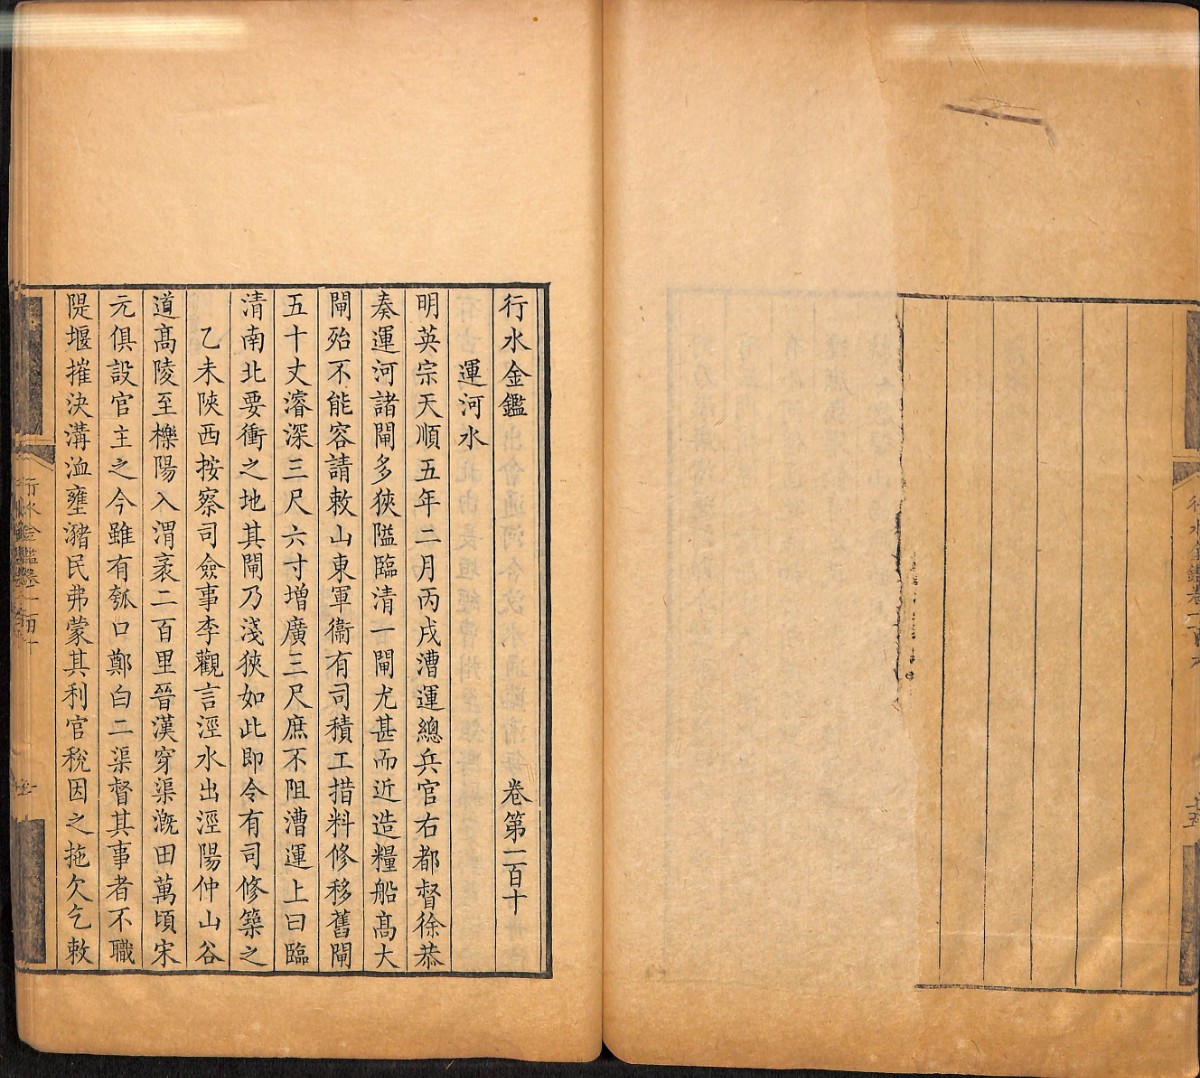 行水金鑑 卷第一百十
運河水
明英宗天順五年二月丙戌漕運總兵官右都督徐恭
奏運河諸閘多狹隘臨清一閘尤甚而近造糧船高大
閘殆不能容請敕山東軍衞有司積工措料修移舊閘
五十丈濬深三尺六寸增廣三尺庶不阻漕運上曰臨
清南北要衝之地其閘乃淺狹如此即令有司修築之
乙未陝西按察司僉事李觀言涇水出涇陽仲山谷
道高陵至櫟陽入渭袤二百里晉漢穿渠漑田萬頃宋
元俱設官主之今雖有瓠口鄭白二渠督其事者不職
隄堰摧決溝洫壅瀦民弗蒙其利官稅因之拖欠乞敕
行水金鑑卷一百十